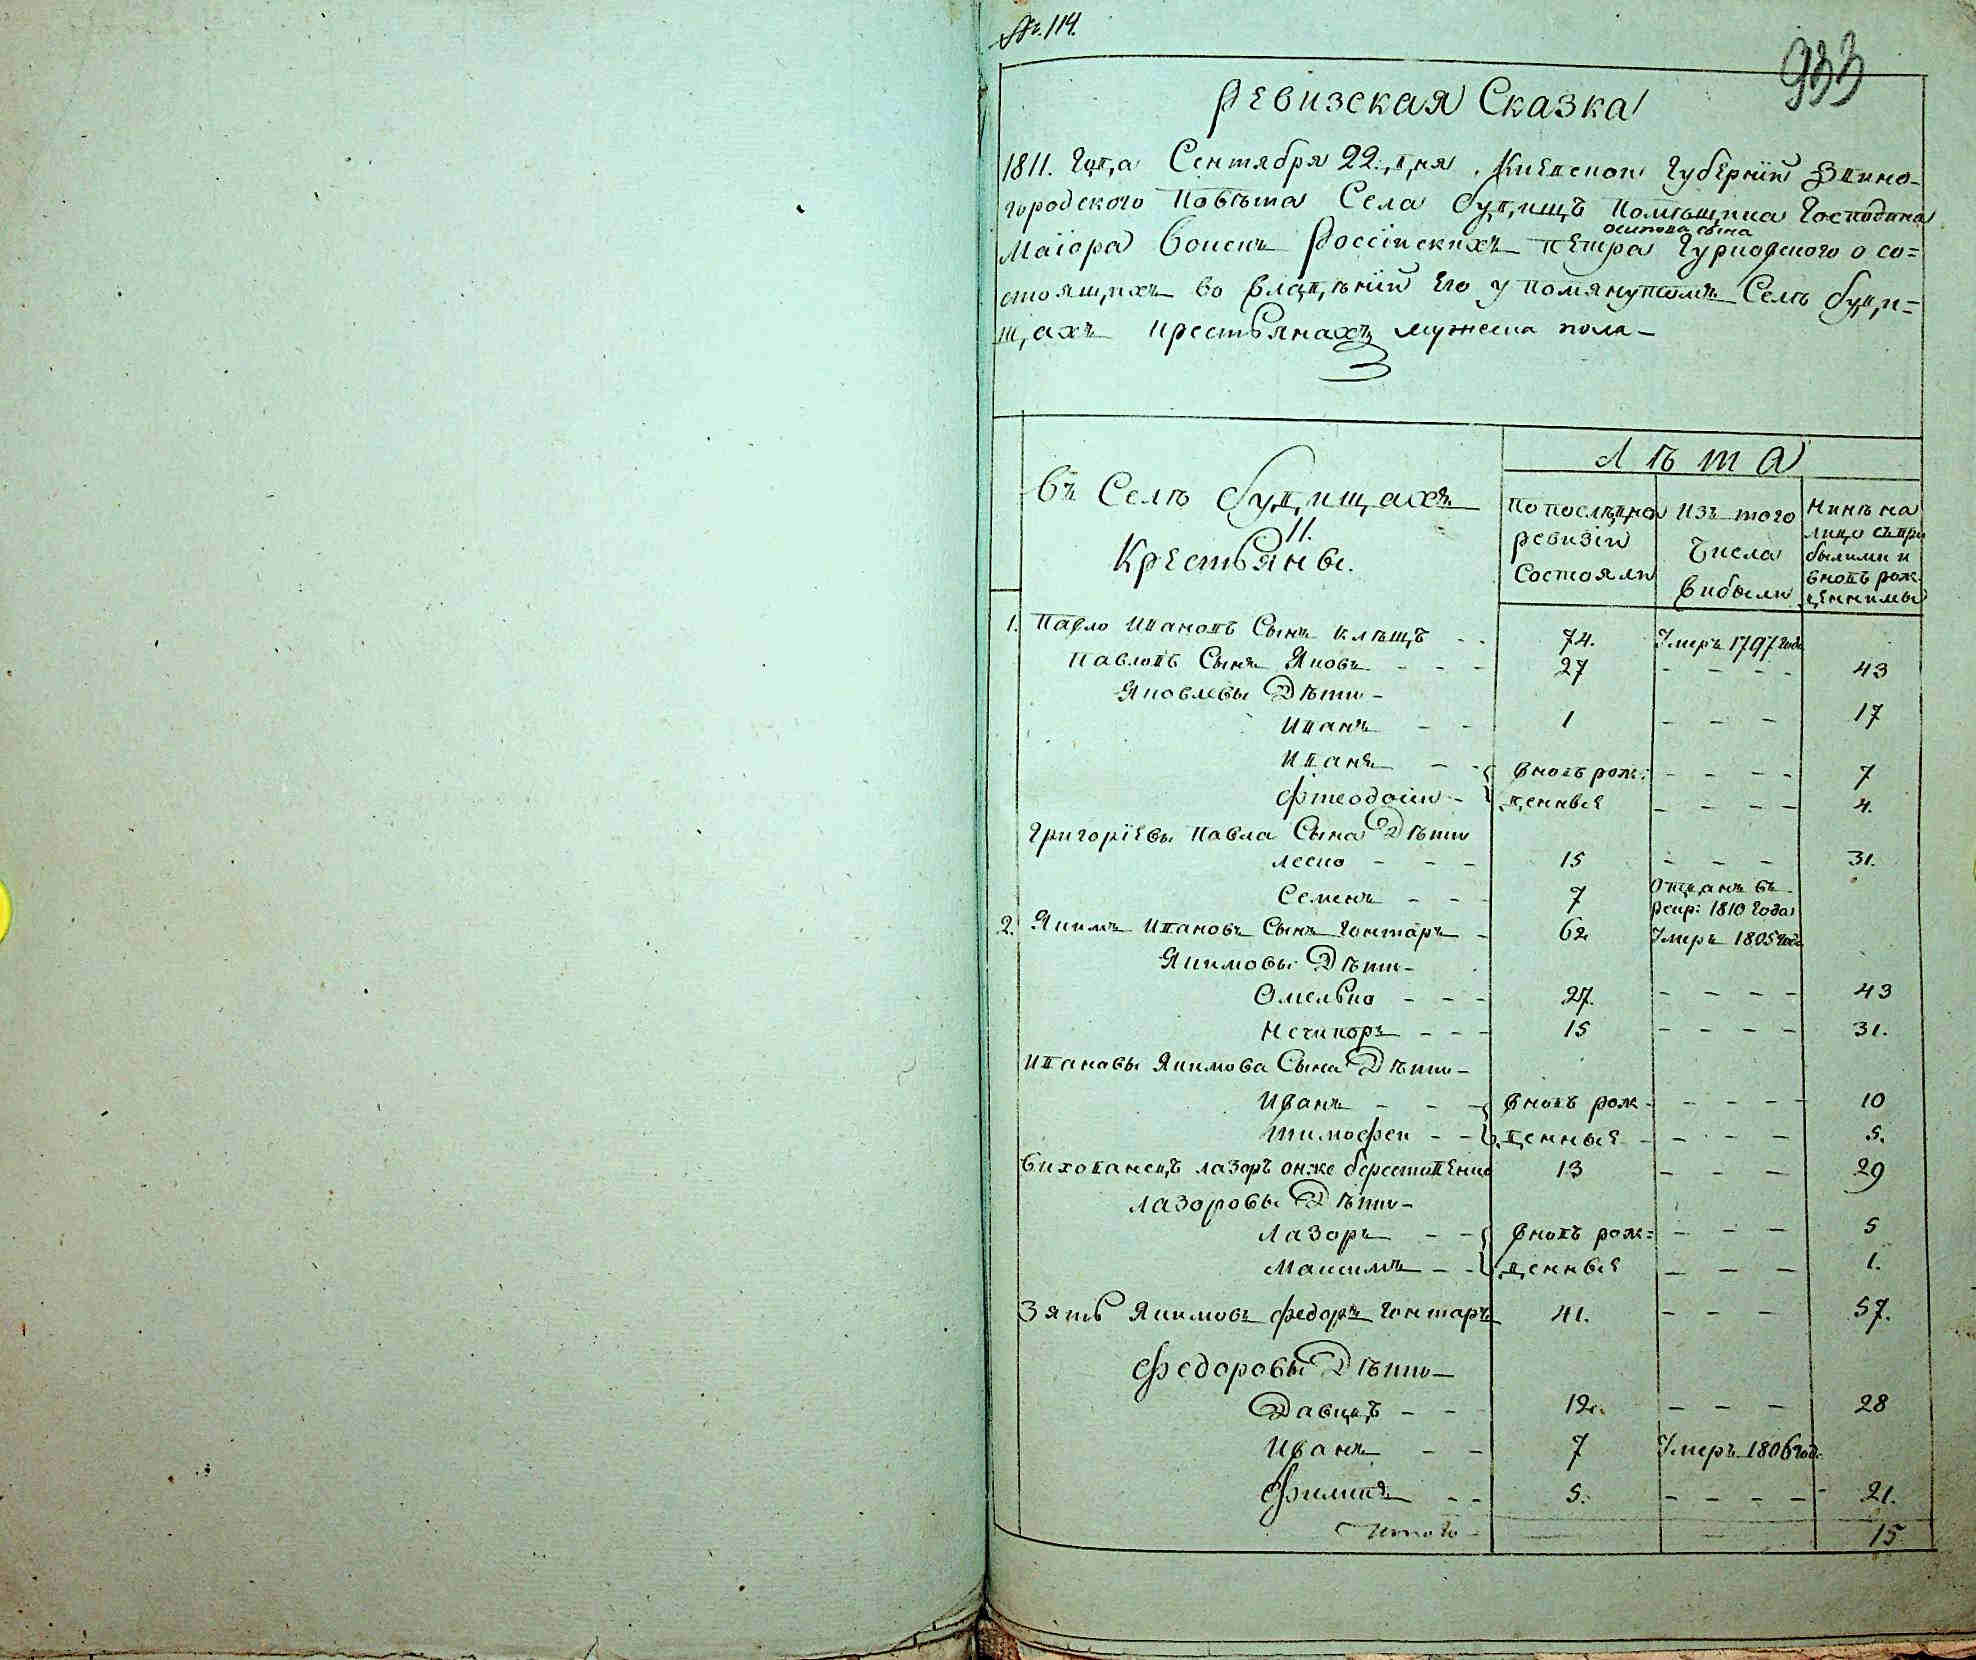 №. 114.
933
Ревизская Сказка
1811. Года Сентября 22. дня. Киевской Губернїи Звино-
городского Повѣта Села Будищъ Помѣщика Господина
осипова сына
Маіора Воискъ Россїискихъ Петра Гурковского о со=
стоящихъ во владѣнїи Его у помянутомъ Селѣ Буди=
щахъ крестьянахъ мужеска пола –
Въ Селѣ Будищахъ
11.
Крестьяны.
Лѣта
По последной
ревизіи
состояли
Изъ того
Числа
вибыли
Нинѣ на
лицо съ при
былими и
вновь рож
денними
1. Павло Ивановъ Сынъ Клѣщъ - - 74. Умеръ 1797 года
Павловъ Сынъ Яковъ - - - 27 - - - - 43
Яковлевы Дѣти -
Иванъ - - 1 - - - 17
Иванъ - - вновь рож: - - - - 7
Фтеодосіи - денные - - - - 4.
Григорїевы Павла Сына Дѣти
леско - - - 15 - - - 31.
Семенъ - - - 7 Отданъ въ
рекр: 1810 года
2. Якимъ Ивановъ Сынъ Гонтаръ - 62 Умеръ 1805 года
Якимовы Дѣти -
Омелько - - - 27. - - - - 43
Нечипоръ - - - 15 - - - - 31.
Ивановы Якимова Сына Дѣти -
Иванъ - - - вновь рож - - - - - 10
Тимофеи - - денные - - - - 5.
Вихованецъ лазоръ онже берестовенко 13 - - - 29
Лазоровы Дѣти -
Лазоръ - - вновь рож= - - - 5
Максимъ - - денные - - - 1.
Зять Якимовъ Федоръ Гонтаръ 41. - - - 57.
Федоровы Дѣти -
Давидъ - - 12. - - - 28
Иванъ - - 7 Умеръ 1806 год.
Филипъ - - 5. - - - - - 21.
Итого - 15